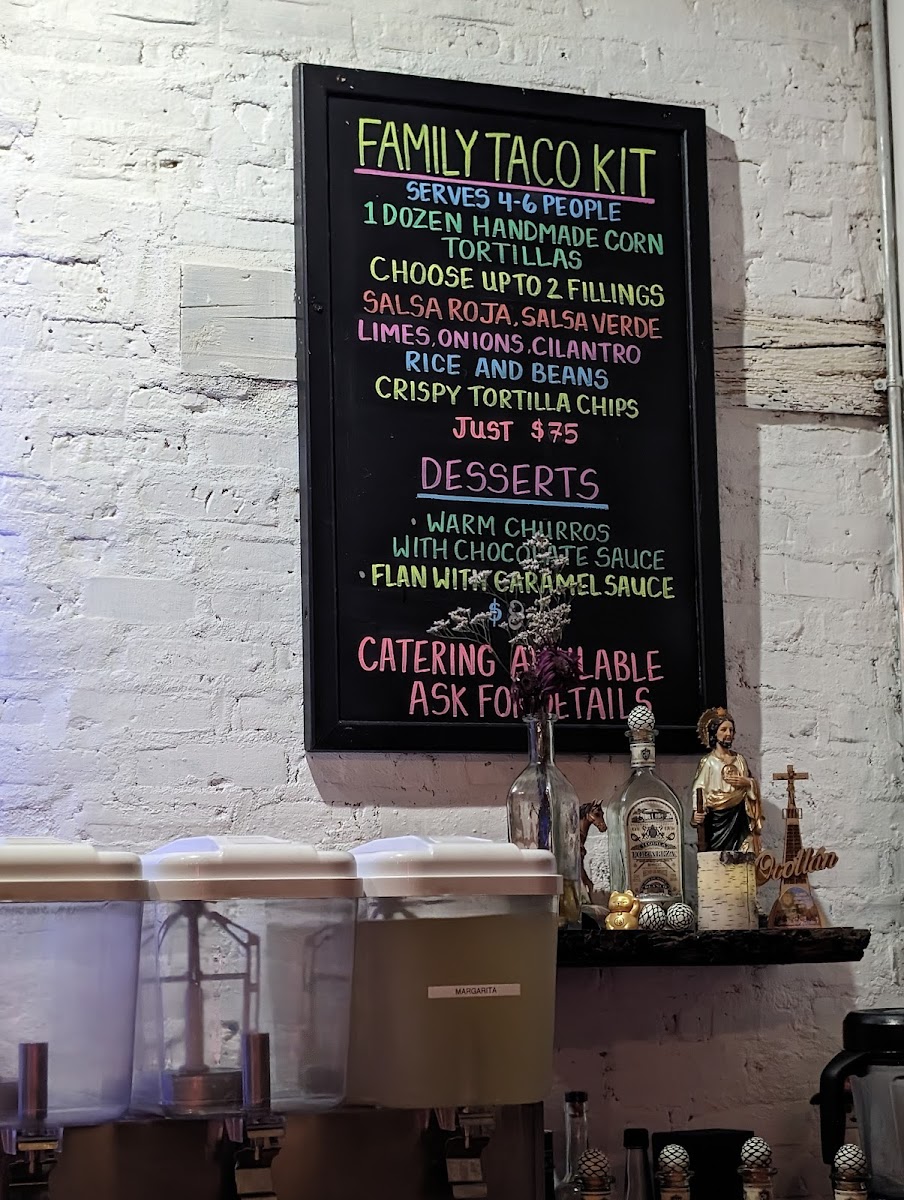 FAMILY TACO KIT
SERVES 4-6 PEOPLE
1 DOZEN HANDMADE CORN
TORTILLAS
CHOOSE UP TO 2 FILLINGS
SALSA ROJA, SALSA VERDE
LIMES, ONIONS, CILANTRO
RICE AND BEANS
CRISPY TORTILLA CHIPS
JUST $75
DESSERTS
• WARM CHURROS
WITH CHOCOLATE SAUCE
• FLAN WITH CARAMEL SAUCE
$8
CATERING AVAILABLE
ASK FOR DETAILS
TEQUILA
FORTALEZA
Ocotlán
MARGARITA